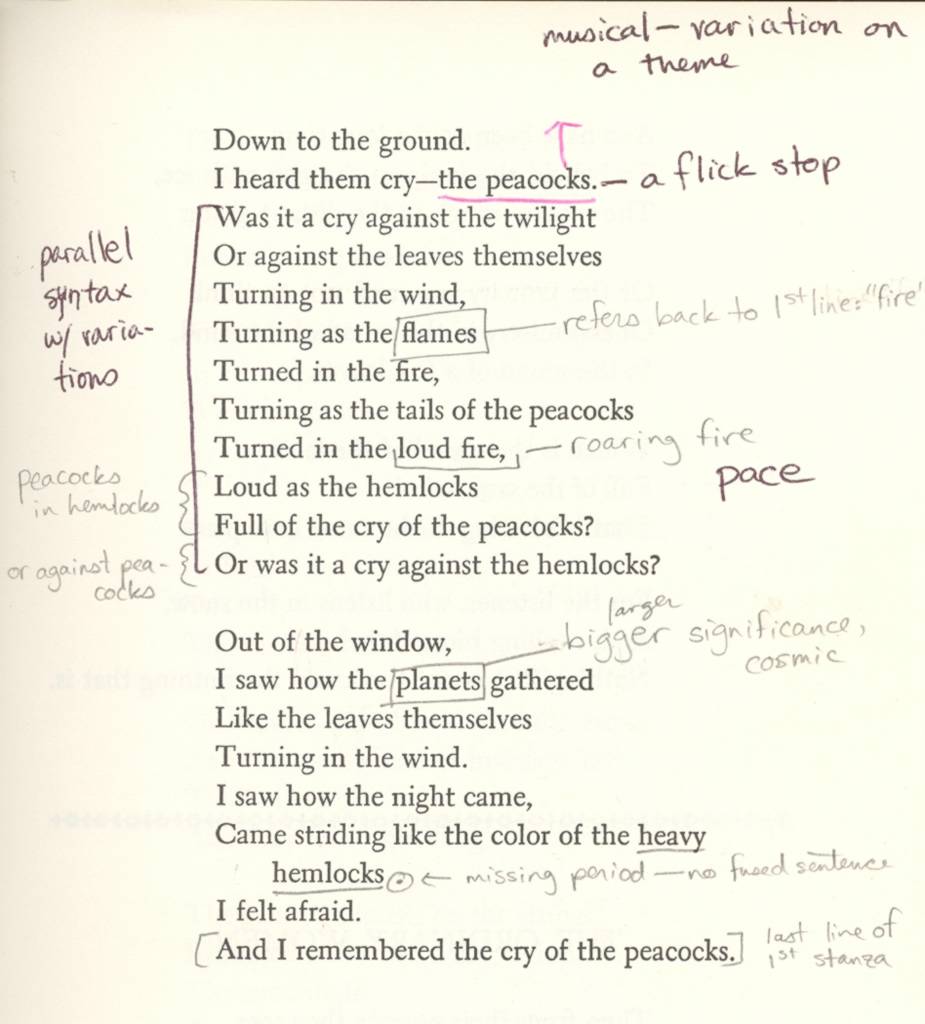 musical — variation on
a theme
Down to the ground.
I heard them cry—the peacocks. — a flick stop
Was it a cry against the twilight
Or against the leaves themselves
parallel
syntax
w/ varia-
tions
Turning in the wind,
Turning as the flames — refers back to 1st line: "fire"
Turned in the fire,
Turning as the tails of the peacocks
Turned in the loud fire, — roaring fire
pace
peacocks
in hemlocks
Loud as the hemlocks
Full of the cry of the peacocks?
or against pea-
cocks
Or was it a cry against the hemlocks?
larger
Out of the window, bigger significance,
cosmic
I saw how the planets gathered
Like the leaves themselves
Turning in the wind.
I saw how the night came,
Came striding like the color of the heavy
hemlocks. ← missing period — no fused sentence
I felt afraid.
[And I remembered the cry of the peacocks.] last line of
1st stanza